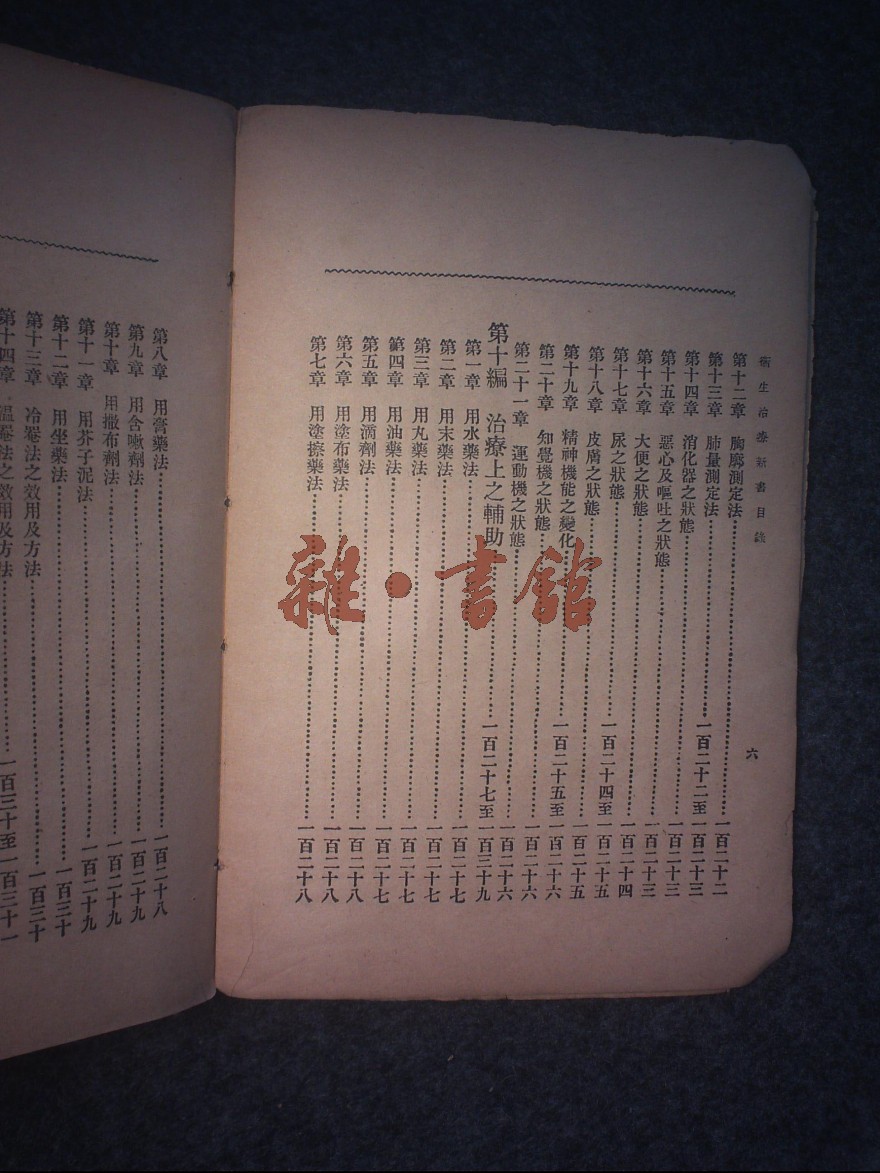 衛生治療新書目錄
六
第十二章 胸廓測定法 一百二十二
第十三章 肺量測定法 一百二十二至一百二十三
第十四章 消化器之狀態 一百二十三
第十五章 惡心及嘔吐之狀態 一百二十三
第十六章 大便之狀態 一百二十四
第十七章 尿之狀態 一百二十四至一百二十五
第十八章 皮膚之狀態 一百二十五
第十九章 精神機能之變化 一百二十五至一百二十六
第二十章 知覺機之狀態 一百二十六
第二十一章 運動機之狀態 一百二十六
第十編 治療上之輔助 一百二十七至一百三十九
第一章 用水藥法 一百二十七
第二章 用末藥法 一百二十七
第三章 用丸藥法 一百二十七
第四章 用油藥法 一百二十七
第五章 用滴劑法 一百二十八
第六章 用塗布藥法 一百二十八
第七章 用塗擦藥法 一百二十八
第八章 用膏藥法 一百二十八
第九章 用含嗽劑法 一百二十九
第十章 用撒布劑法 一百二十九
第十一章 用芥子泥法 一百二十九
第十二章 用坐藥法 一百三十
第十三章 冷罨法之效用及方法 一百三十
第十四章 溫罨法之效用及方法 一百三十至一百三十一
雜·書館